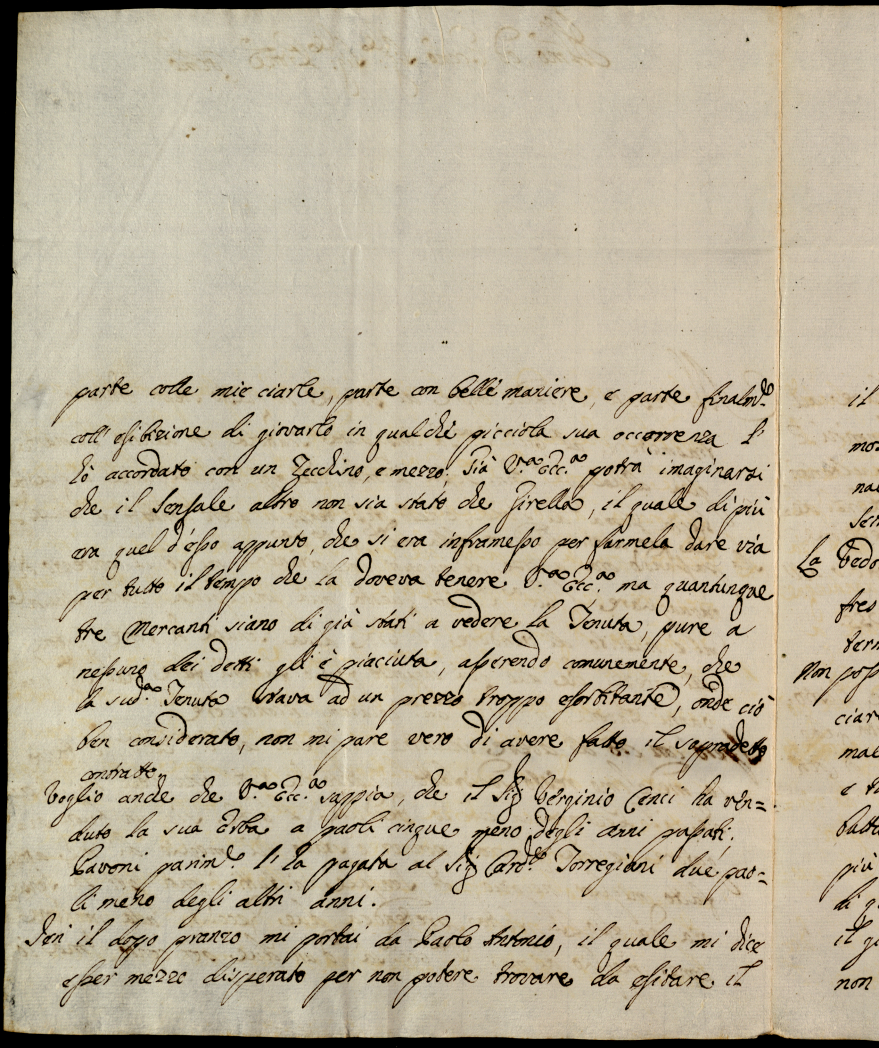 parte colle mie ciarle, parte con belle maniere, e parte finalm.te
coll' esibizione di giovarlo in qualche picciola sua occorrenza l'
hò accordato con un Zecchino, e mezzo; Già V.ra Ecc.za potrà imaginarsi
che il Sensale altro non sia stato che Girella, il quale di più
era quel d'esso appunto, che si era inframesso per farmela dare via
per tutto il tempo che la doveva tenere V.ra Ecc.za ma quantunque
tre Mercanti siano di già stati a vedere la Tenuta, pure a
nessuno dei detti gli è piaciuta, asserendo comunemente, che
la sud.a Tenuta stava ad un prezzo troppo esorbitante, onde ciò
ben considerato, non mi pare vero di avere fatto il sopradetto
contratto.
Voglio anche che V.ra Ecc.za sappia, che il Sig.r Verginio Cenci ha ven=
duto la sua Erba a paoli cinque meno degli anni passati.
Pavoni parim.te l'ha pagata al Sig.r Card.le Torregiani due pao=
li meno degli altri anni.
Jeri il dopo pranzo mi portai da Paolo Antonio, il quale mi dice
esser mezzo disperato per non potere trovare da esitare il
il
mo
na
La vedo
fres
Non poss
ciar
mal
e
batt
più
di
il
non